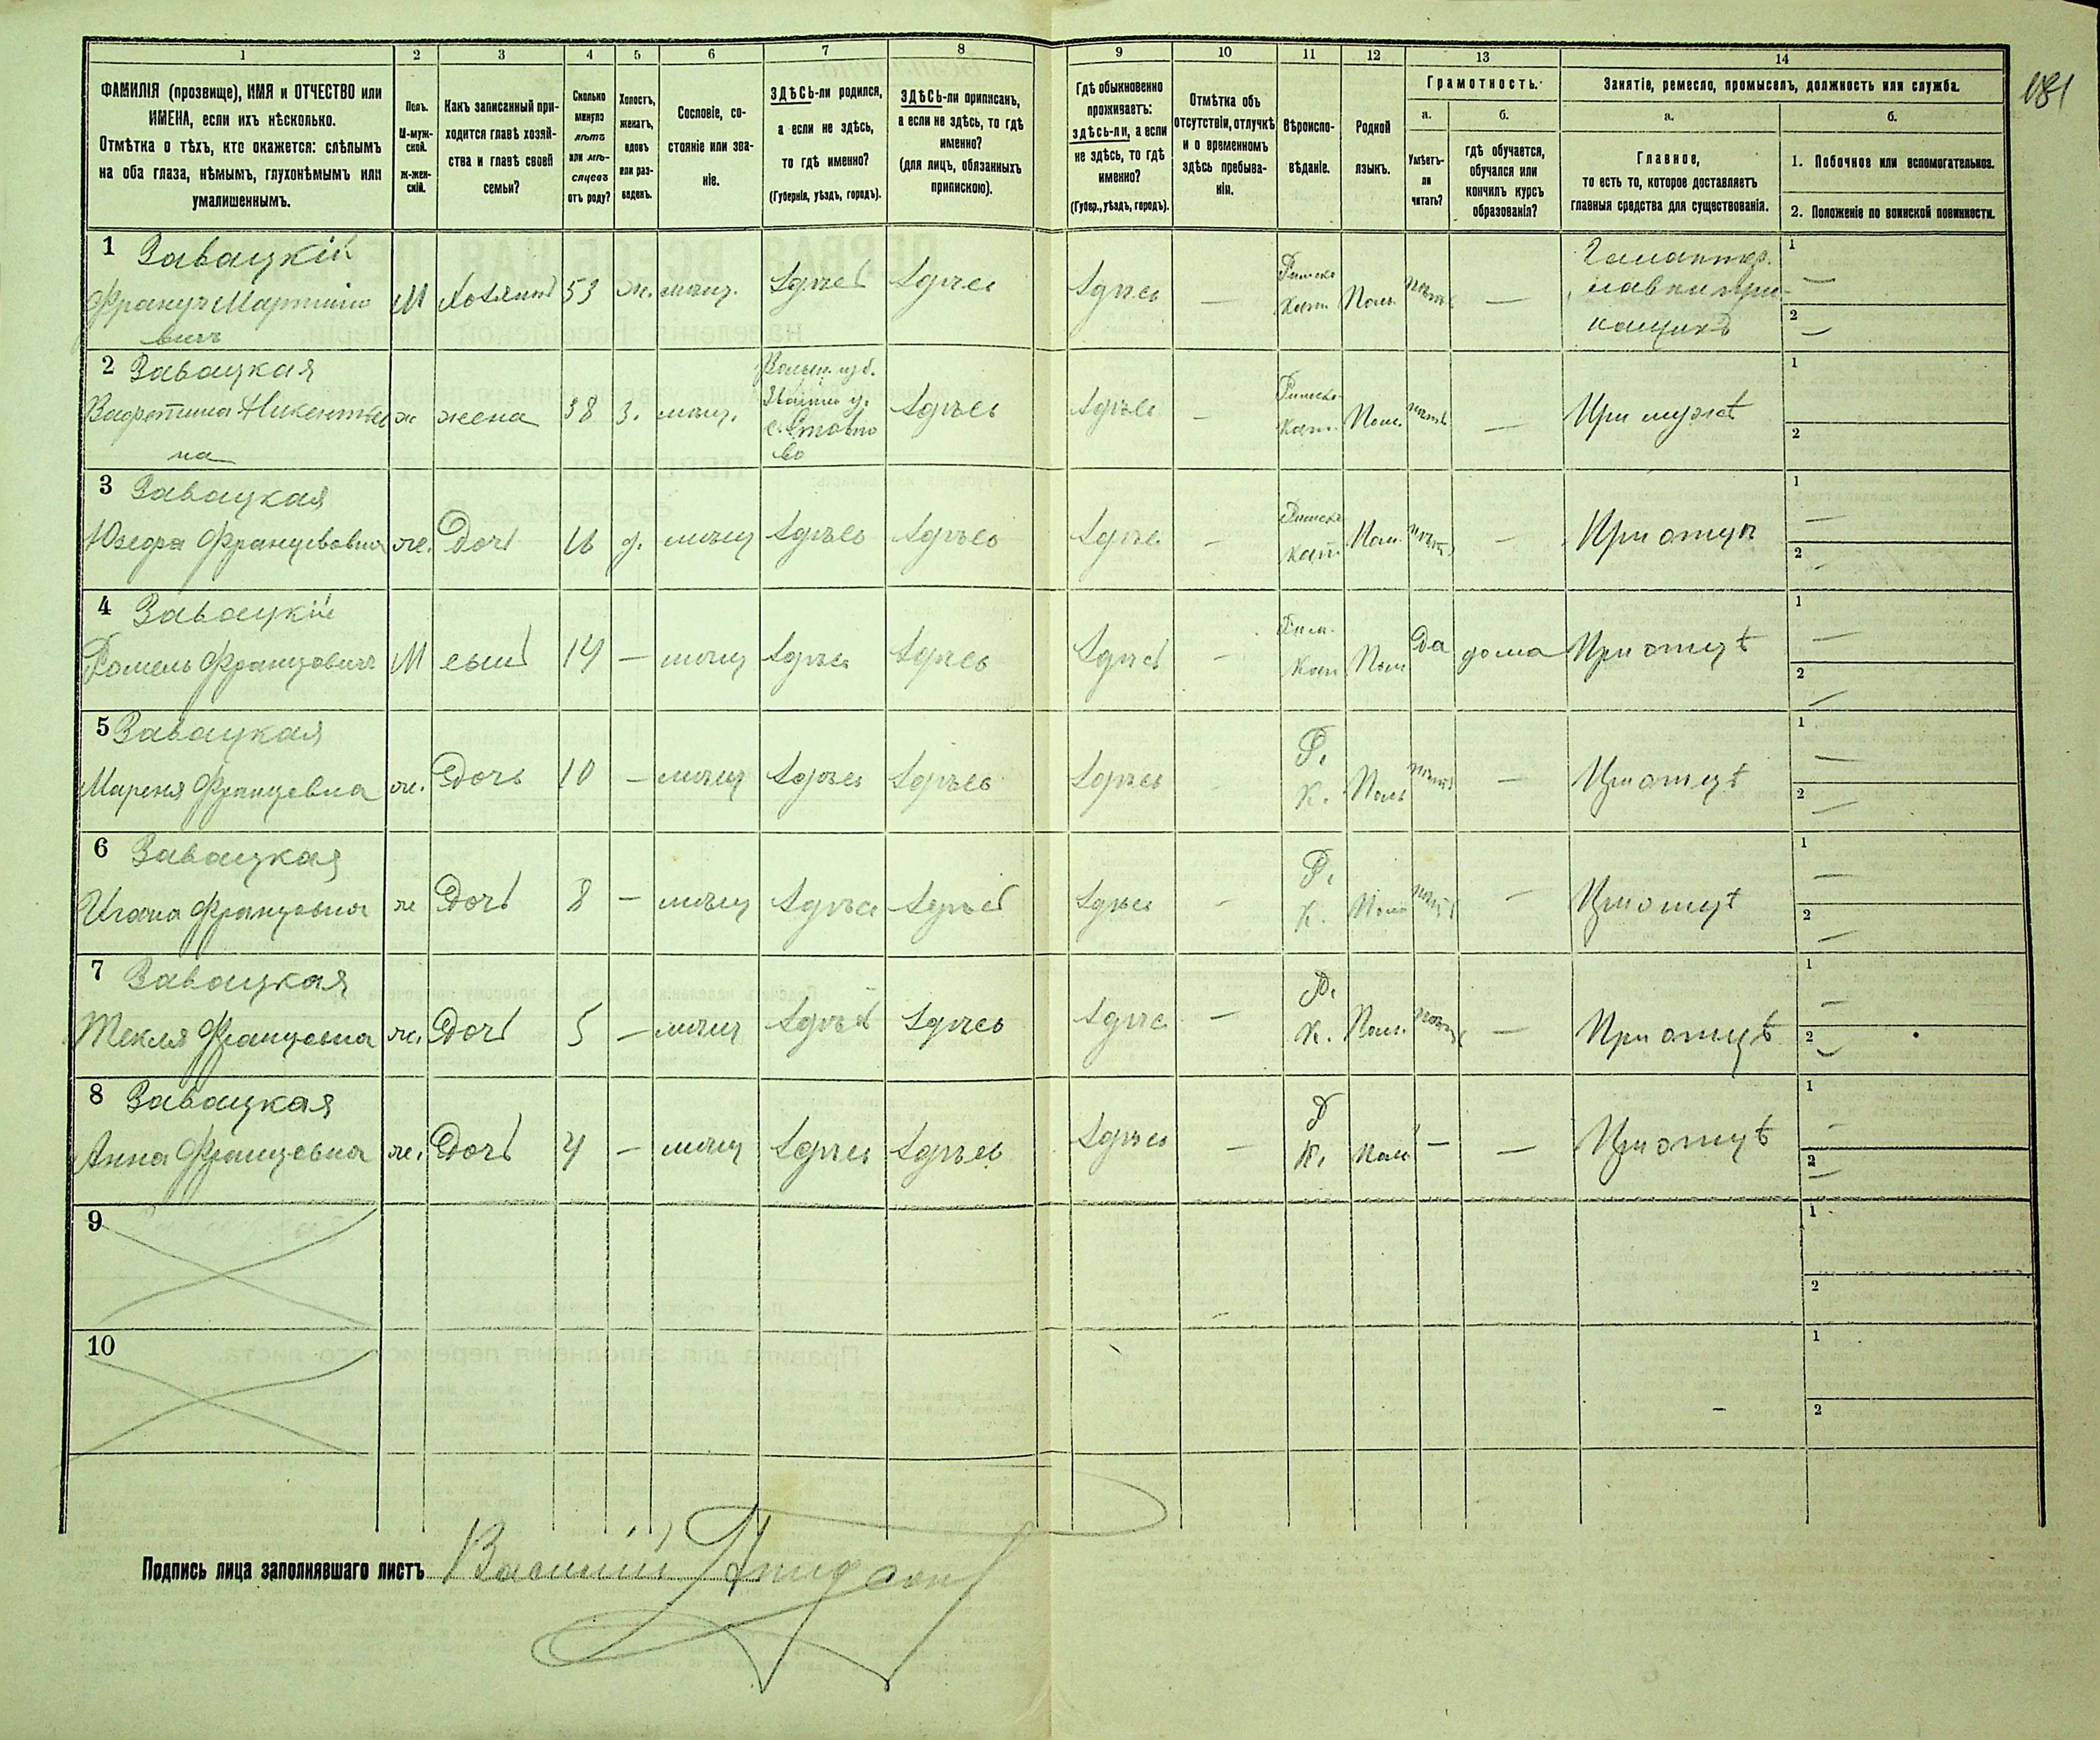 181
1 2 3 4 5 6 7 8 9 10 11 12 13 14
ФАМИЛІЯ (прозвище), ИМЯ и ОТЧЕСТВО или
ИМЕНА, если ихъ нѣсколько.
Отмѣтка о тѣхъ, кто окажется: слѣпымъ
на оба глаза, нѣмымъ, глухонѣмымъ или
умалишеннымъ.
Полъ.
М-муж-
ской.
Ж-жен-
скій.
Какъ записанный при-
ходится главѣ хозяй-
ства и главѣ своей
семьи?
Сколько
минуло
лѣтъ
или мѣ-
сяцевъ
отъ роду?
Холостъ,
женатъ,
вдовъ
или раз-
веденъ.
Сословіе, со-
стояніе или зва-
ніе.
ЗДѢСЬ-ли родился,
а если не здѣсь,
то гдѣ именно?
(Губернія, уѣздъ, городъ).
ЗДѢСЬ-ли приписанъ,
а если не здѣсь, то гдѣ
именно?
(для лицъ, обязанныхъ
припискою).
Гдѣ обыкновенно
проживаетъ:
здѣсь-ли, а если
не здѣсь, то гдѣ
именно?
(Губер., уѣздъ, городъ).
Отмѣтка объ
отсутствіи, отлучкѣ
и о временномъ
здѣсь пребыва-
ніи.
Вѣроиспо-
вѣданіе.
Родной
языкъ.
Грамотность.
а.
Умѣетъ-
ли
читать?
б.
гдѣ обучается,
обучался или
кончилъ курсъ
образованія?
Занятіе, ремесло, промыселъ, должность или служба.
а.
Главное,
то есть то, которое доставляетъ
главныя средства для существованія.
б.
1. Побочное или вспомогательное.
2. Положеніе по воинской повинности.
1 Завацкій
Францъ Мартино
вичъ
М Хозяинъ 53 ж. мѣщ. Здѣсь Здѣсь Здѣсь — Римско Кат. Поль. нѣтъ —
Галантер.
лавки при-
кащикъ
1 —
2 —
2 Завацкая
Викентьев
на
ж жена 38 з. мѣщ.
Волын. губ.
с. Ставно
во
Здѣсь Здѣсь — Римско- Кат. Поль. нѣтъ — При мужѣ
1
2
3 Завацкая
Юзефа Францовна ж. Дочь 16 д. мѣщ Здѣсь Здѣсь Здѣсь — Римско Кат. Поль. нѣтъ — При отцѣ
1 —
2 —
4 Завацкій
Францовичъ М сынъ 14 — мѣщ Здѣсь Здѣсь Здѣсь — Рим. Кат Поль Да дома При отцѣ
1 —
2 —
5 Завацкая
Мареня Францевна ж. Дочь 10 — мѣщ Здѣсь Здѣсь Здѣсь Р. К. Поль нѣтъ — При отцѣ
1 —
2 —
6 Завацкая
Францовна ж Дочь 8 — мѣщ Здѣсь Здѣсь Здѣсь — Р. К. Поль нѣтъ — При отцѣ
1 —
2 —
7 Завацкая
Текля Францовна ж. Дочь 5 — мѣщ Здѣсь Здѣсь Здѣсь — Р. К. Поль. нѣтъ — При отцѣ
1 —
2 —
8 Завацкая
Анна Францевна ж. Дочь 4 — мѣщ Здѣсь Здѣсь Здѣсь — Р К. Пол — — При отцѣ
1 —
2 —
9
1
2
10
1
2
Подпись лица заполнявшаго листъ Василій